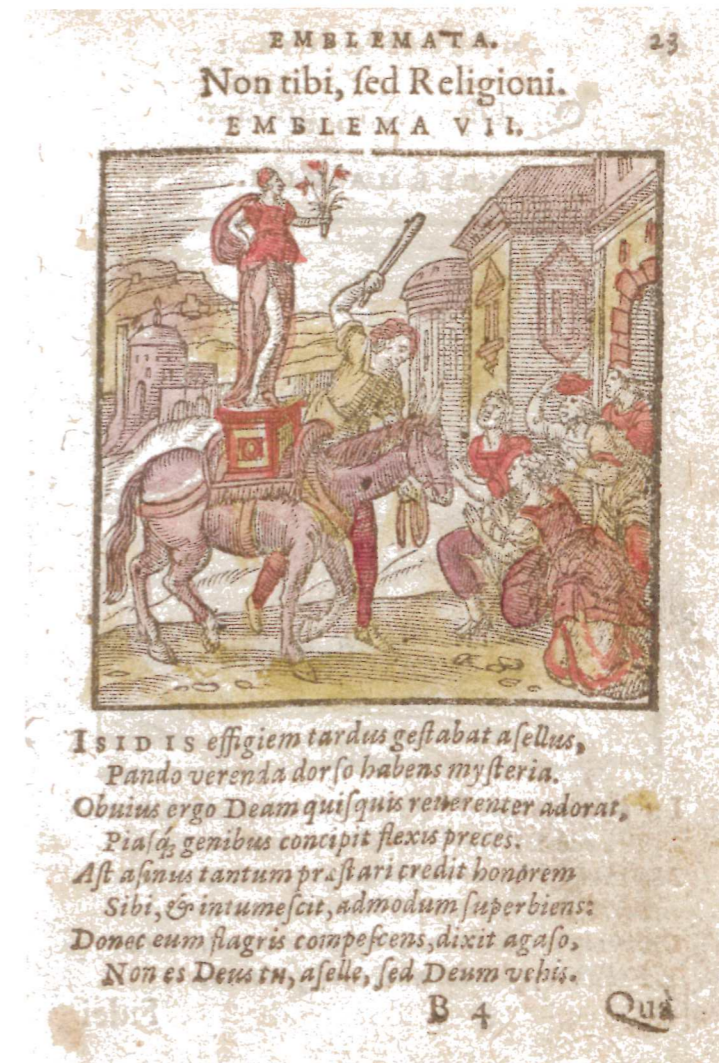 EMBLEMATA. 23
Non tibi, ſed Religioni.
EMBLEMA VII.
ISIDIS effigiem tardus geſtabat aſellus,
Pando verenda dorſo habens myſteria.
Obuius ergo Deam quiſquis reuerenter adorat,
Piaſq́; genibus concipit flexis preces.
Aſt aſinus tantum præſtari credit honorem
Sibi, & intumeſcit, admodum ſuperbiens:
Donec eum flagris compeſcens, dixit agaſo,
Non es Deus tu, aſelle, ſed Deum vehis.
B 4 Quá